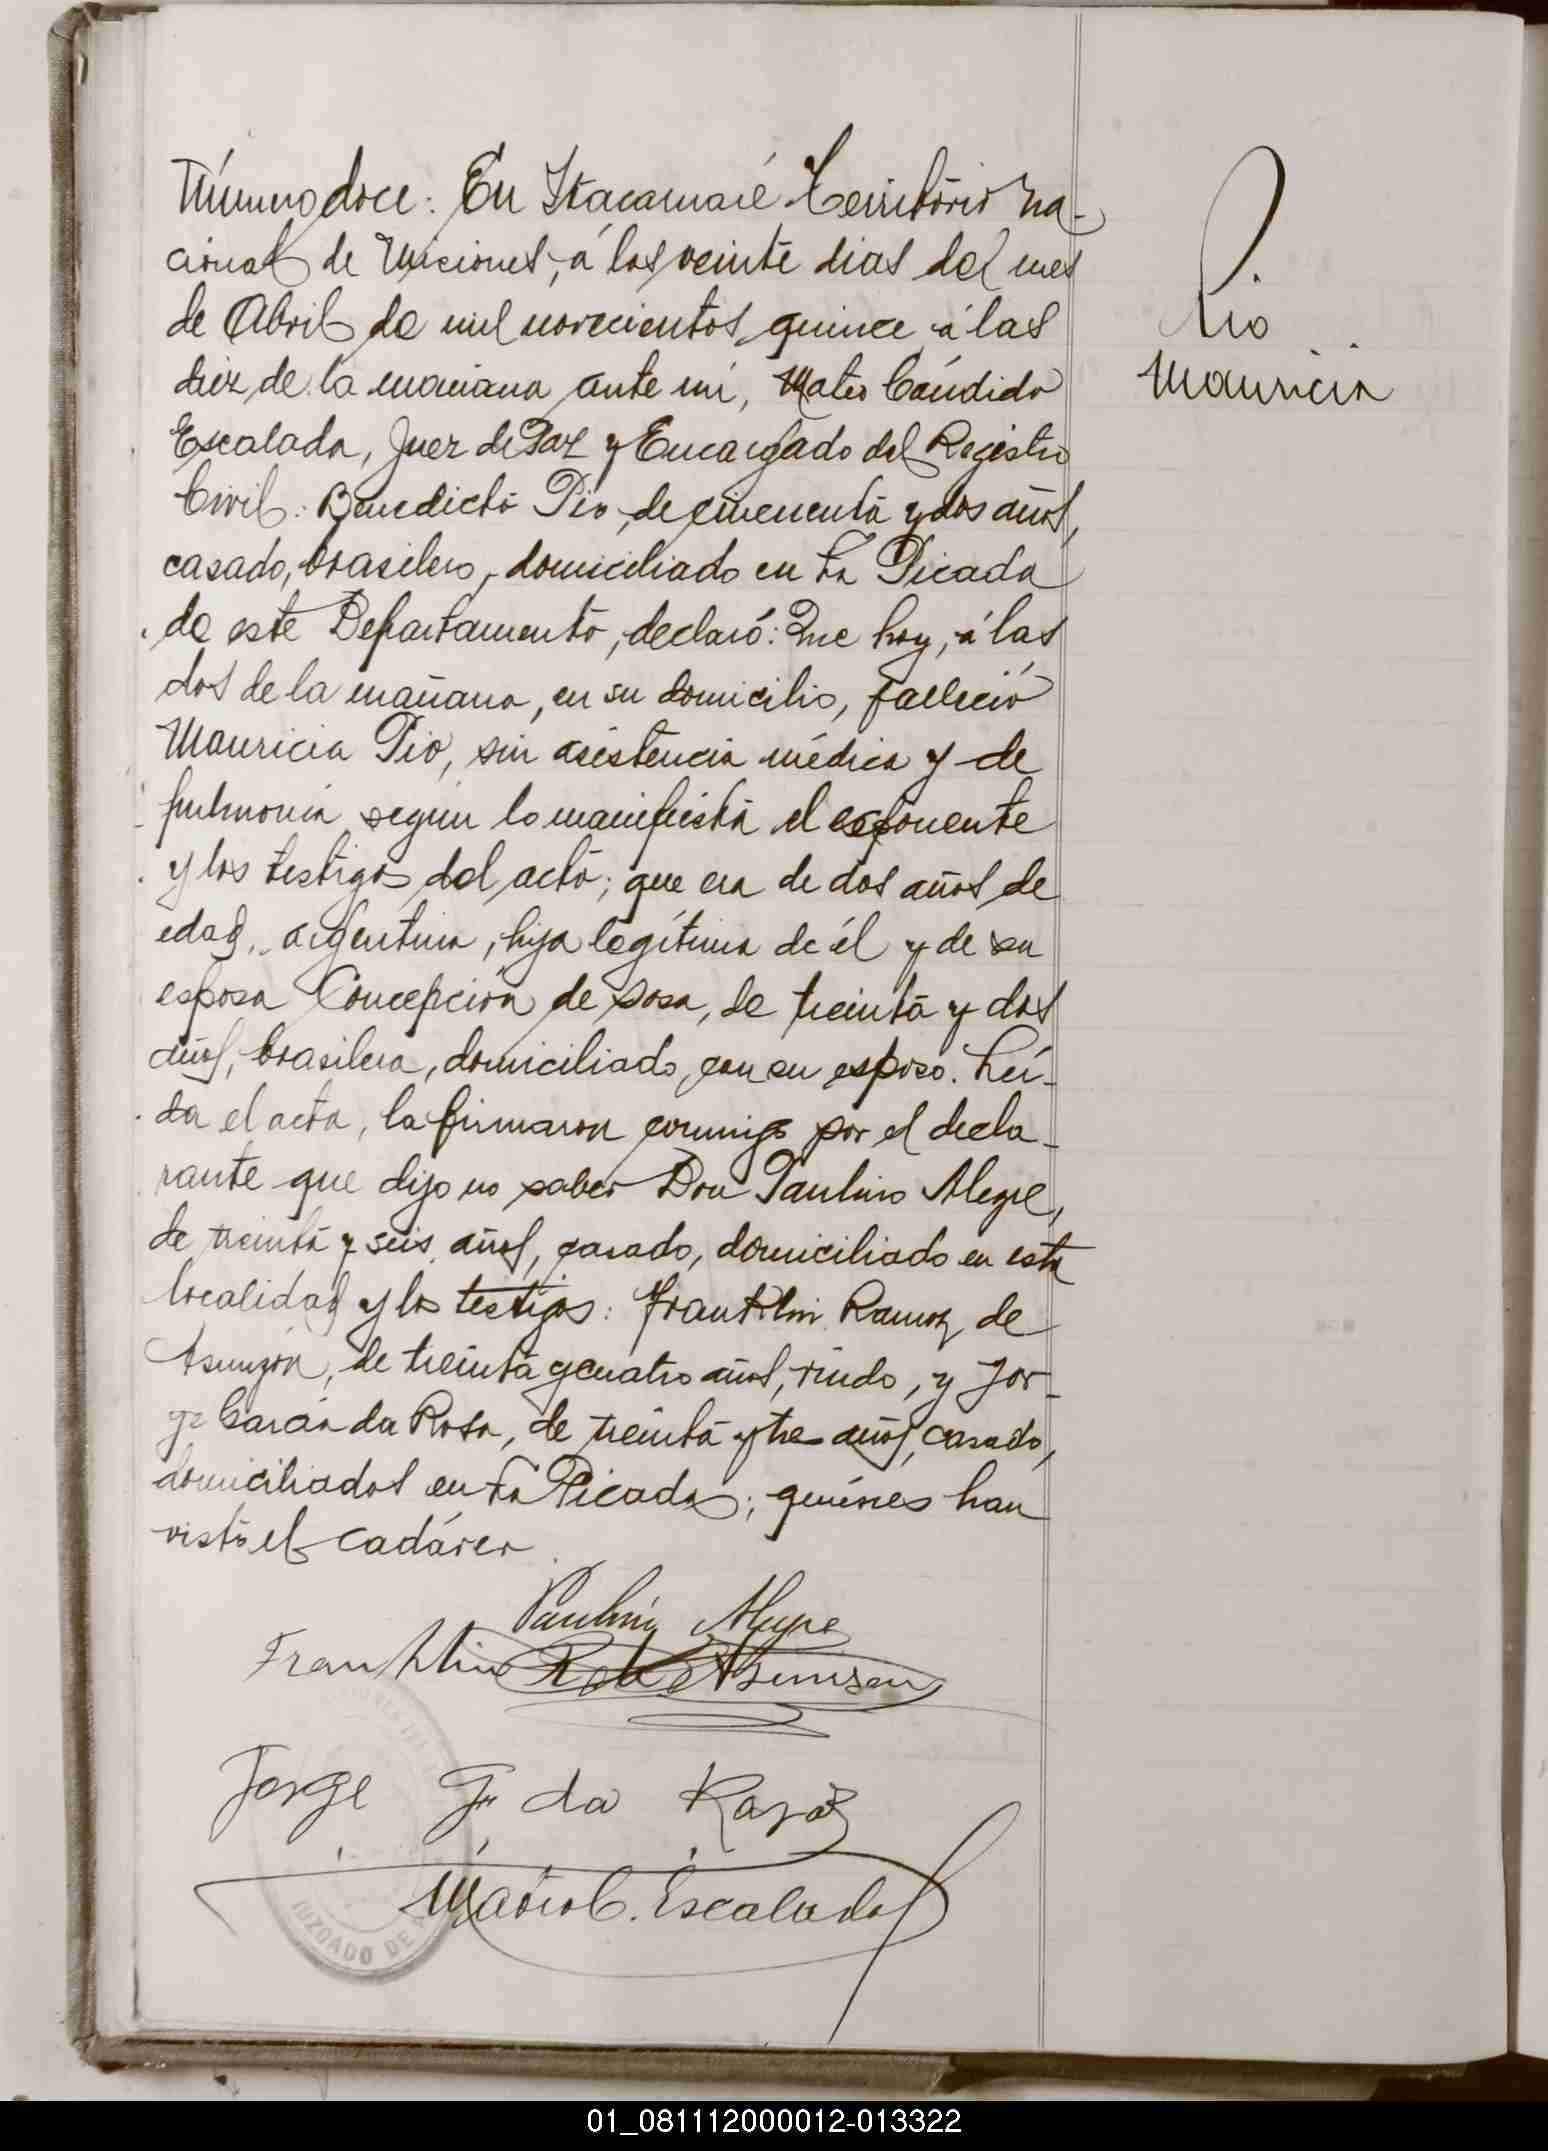 Número doce: En Itacaruaré Territorio na-
cional de Misiones, á los veinte dias del mes
de Abril de mil novecientos quince á las
diez de la mañana ante mi, Mateo Cándido
Escalada, Juez de Paz y Encargado del Registro
Civil: Benedicto Pio, de cincuenta y dos años,
casado, brasilero, domiciliado en La Picada
de este Departamento, declaró: Que hoy, á las
dos de la mañana, en su domicilio, falleció
Mauricia Pio, sin asistencia médica y de
pulmonia segun lo manifiesta el esponente
y los testigos del acto; que era de dos años de
edad, argentina, hija legítima de él y de su
esposa Concepción de Sosa, de treinta y dos
años, brasilera, domiciliado, con su esposo. Leí-
da el acta, la firmaron conmigo por el decla-
rante que dijo no saber Don Paulino Alegre,
de treinta y seis años, casado, domiciliado en esta
localidad y los testigos: Franklin Ramoz de
Asunzón, de treinta y cuatro años, viudo, y Jor-
ge da Rosa, de treinta y tres años, casado,
domiciliados en La Picada; quiénes han
visto el cadáver
Paulino Alegre
Franklin R de Asumsan
Jorge G. da Rosa
Mateo C. Escalada
JUZGADO DE
Pio
Mauricia
01_081112000012-013322